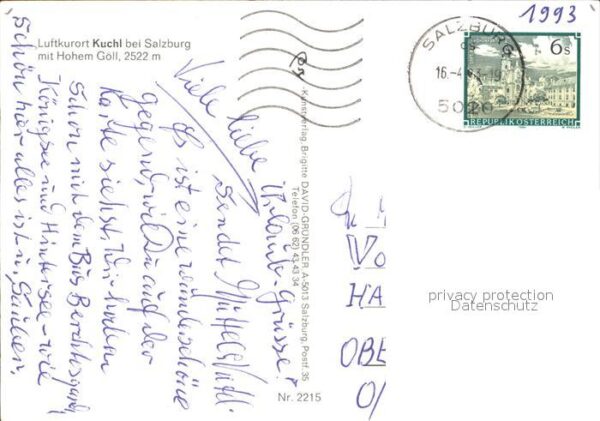 1993
Luftkurort Kuchl bei Salzburg
mit Hohem Göll, 2522 m
SALZBURG
16.-4.
19
5020
6s
REPUBLIK ÖSTERREICH
Viele liebe Urlaubs-Grüsse!
Sendet
Es ist eine wunderschöne
gegend, wie Du auf der
Karte siehst. Wir
Schon mit dem Bus Berchtesgaden,
Königsee und Hintersee – wie
Schön hier alles ist
Kunstverlag Brigitte DAVID-GRÜNDLER, A-5013 Salzburg, Postf. 35
Telefon (06 62) 43 43 34
Nr. 2215
HA
OBE
privacy protection
Datenschutz